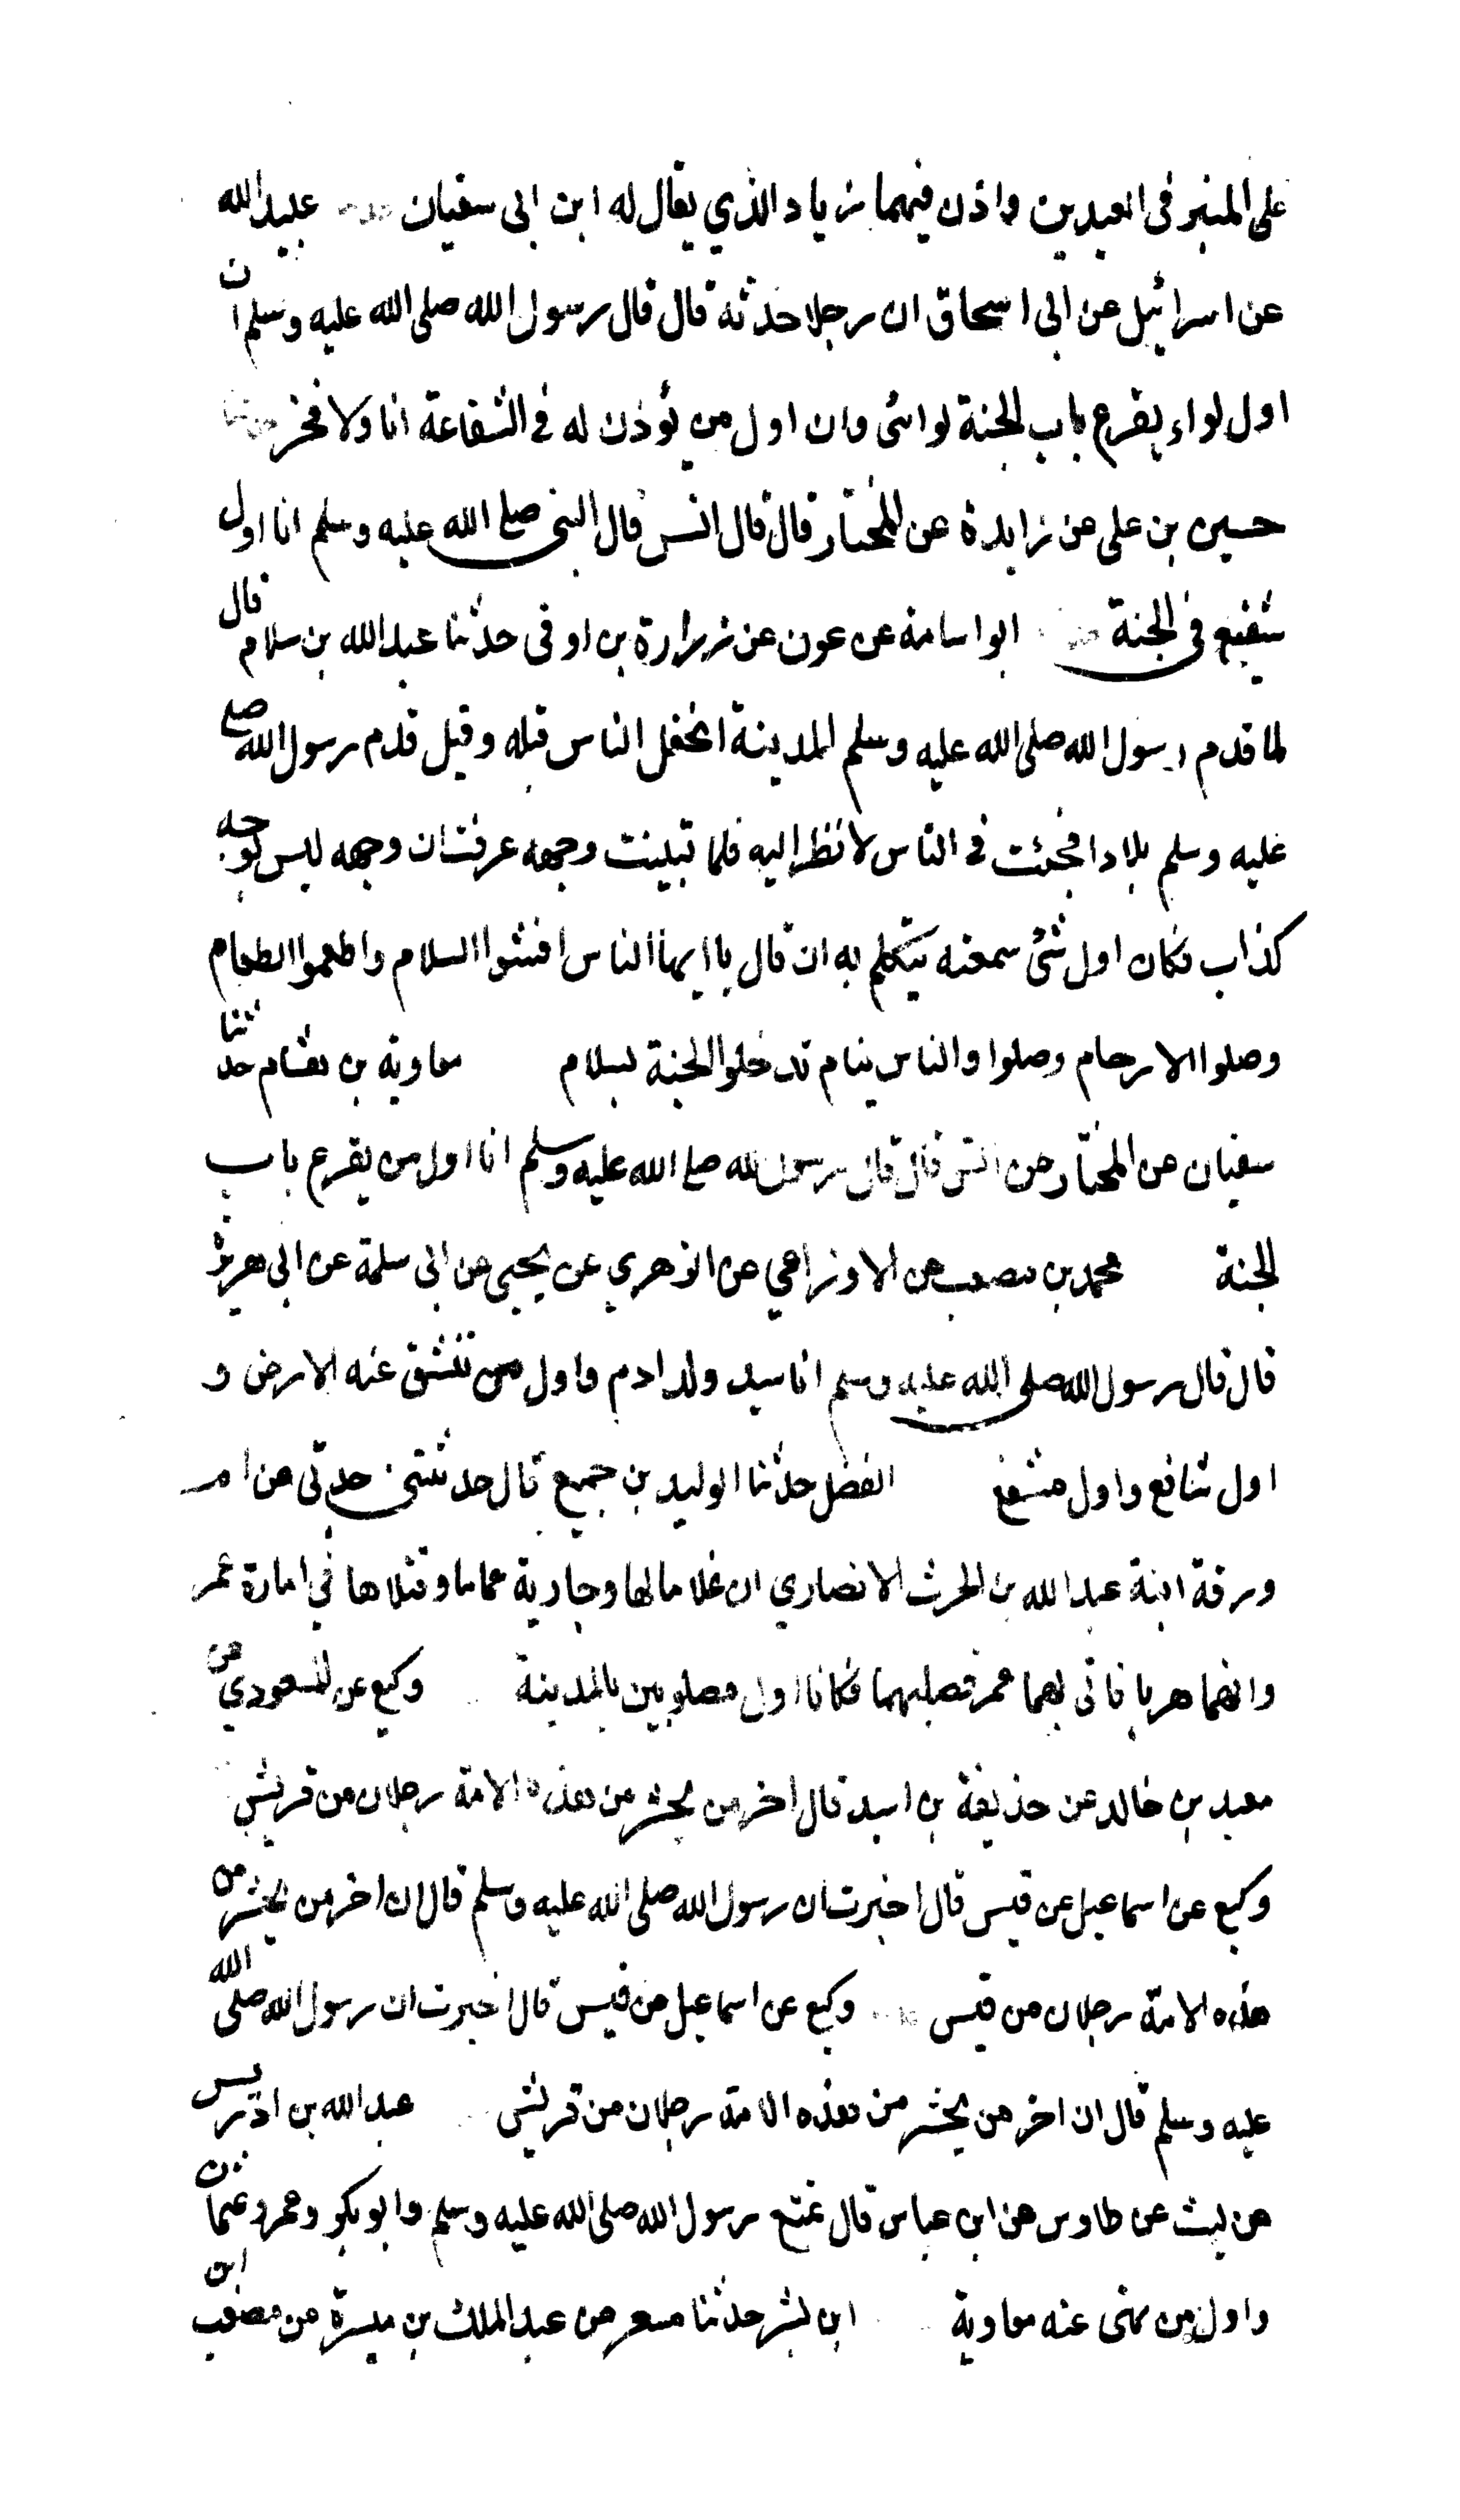 على المنبر في العيدين واذن فيهما زياد الذي يقال له ابن ابى سفيان عبيد الله
عن اسرائيل عن ابى اسحاق ان رجلا حدثه قال قال رسول الله صلى الله عليه وسلم ان
اول لواء يقرع باب الجنة لوائى وان اول من يؤذن له في الشفاعة انا ولا فخر
حسين بن على عن زايدة عن المختار قال قال انس قال النبى صلع الله عليه وسلم انا اول
شفيع في الجنة ابو اسامة عن عون عن زرارة بن اوفى حدثنا عبد الله بن سلام قال
لما قدم رسول الله صلى الله عليه وسلم المدينة انجفل الناس قبله وقيل قدم رسول الله صلع
عليه وسلم بلادا فجئت في الناس لانظر اليه فلما تبينت وجهه عرفت ان وجهه ليس بوجه
كذاب فكان اول شئ سمعته يتكلم به ان قال يا ايها الناس افشوا السلام واطعموا الطعام
وصلوا الارحام وصلوا والناس نيام تدخلوا الجنة بسلام معاوية بن هشام حدثنا
سفيان عن المختار عن انس قال قال رسول الله صلع الله عليه وسلم انا اول من يقرع باب
الجنة محمد بن مصعب عن الاوزاعي عن الزهري عن يحيى عن ابى سلمة عن ابى هريرة
قال قال رسول الله صلى الله عليه وسلم انا سيد ولد ادم واول من تنشق عنه الارض و
اول شافع واول مشفع الفضل حدثنا الوليد بن جميع قال حدثتنى جدتى عن ام
ورقة ابنة عبد الله بن الحرث الانصاري ان غلاما لها وجارية غماها وقتلاها في امارة عمر
وانهما هربا فاتى بهما عمر فصلبهما فكانا اول مصلوبين بالمدينة وكيع عن المسعودي عن
معبد بن خالد عن حذيفة بن اسيد قال اخر من يحشر من هذه الامة رجلان من قريش
وكيع عن اسماعيل عن قيس قال اخبرت ان رسول الله صلى الله عليه وسلم قال ان اخر من يحشر من
هذه الامة رجلان من قيس وكيع عن اسماعيل عن قيس قال اخبرت ان رسول الله صلى الله
عليه وسلم قال ان اخر من يحشر من هذه الامة رجلان من قريش عبد الله بن ادريس
عن ليث عن طاوس عن ابن عباس قال تمتع رسول الله صلى الله عليه وسلم وابو بكر وعمر وعثمان
واول من نهى عنه معاوية ابن بشر حدثنا مسعر عن عبد الملك بن ميسرة عن مصعب ابن